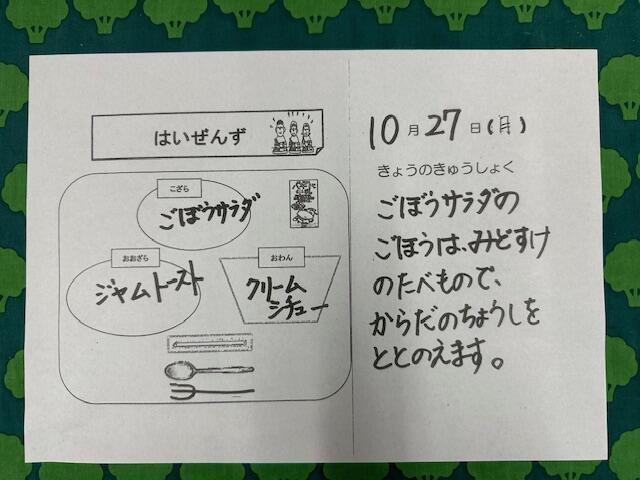 はいぜんず
こざら
ごぼうサラダ
おおざら
ジャムトースト
おわん
クリーム
シチュー
10月27日(月)
きょうのきゅうしょく
ごぼうサラダの
ごぼうは、みどすけ
のたべもので、
からだのちょうしを
ととのえます。